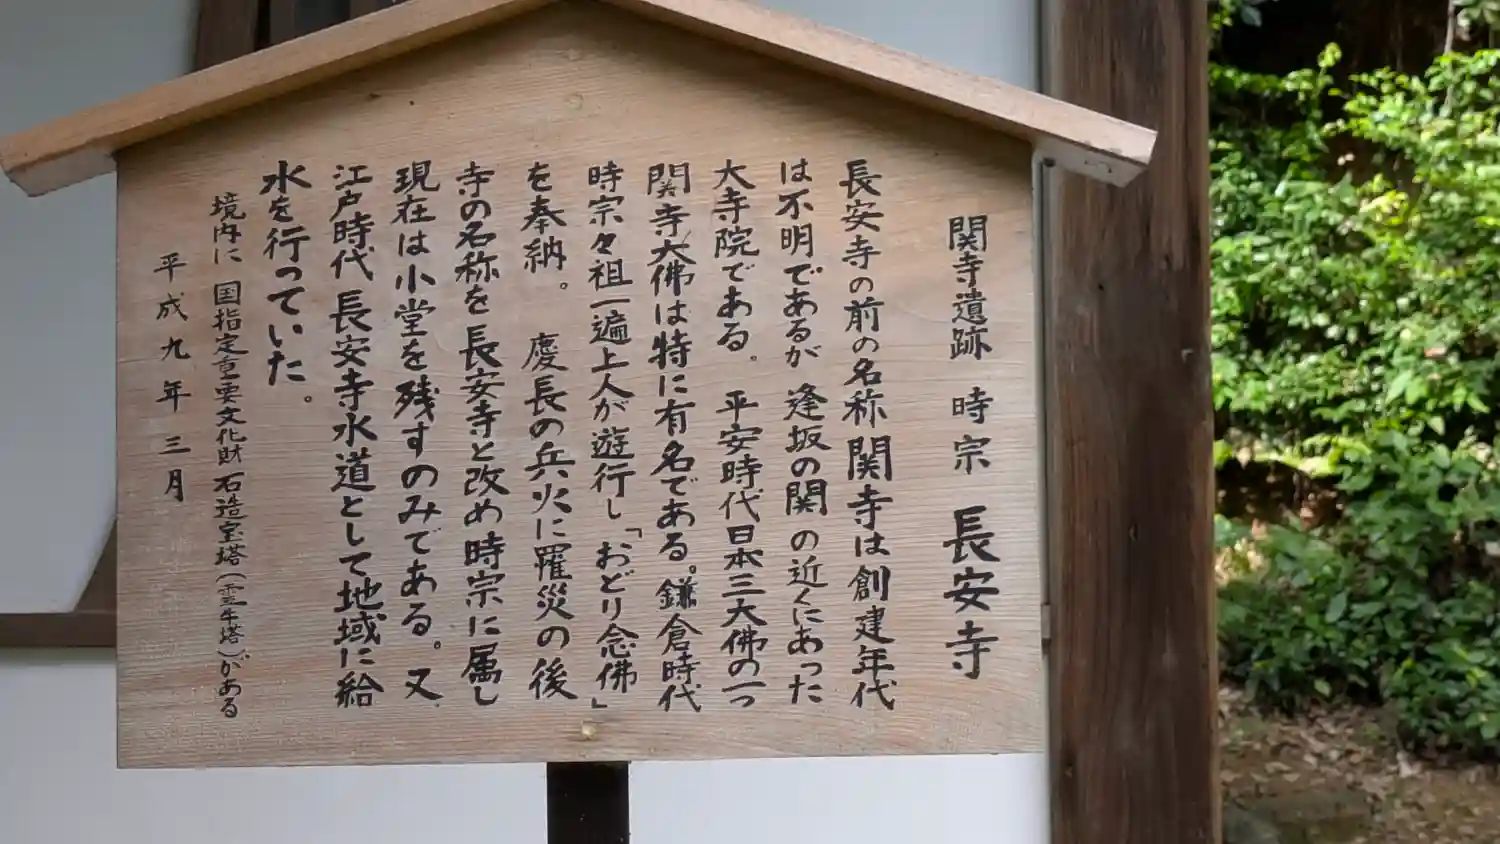 関寺遺跡 時宗 長安寺
長安寺の前の名称関寺は創建年代
は不明であるが 逢坂の関の近くにあった
大寺院である。 平安時代日本三大佛の一つ
関寺大佛は特に有名である。鎌倉時代
時宗々祖一遍上人が遊行し「おどり念佛」
を奉納。 慶長の兵火に羅災の後
寺の名称を長安寺と改め時宗に属し
現在は小堂を残すのみである。又
江戸時代 長安寺水道として地域に給
水を行っていた。
境内に 国指定重要文化財石造宝塔(霊牛塔)がある
平成九年三月